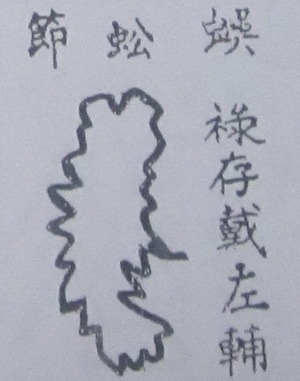 蜈蚣節
祿存戴左輔